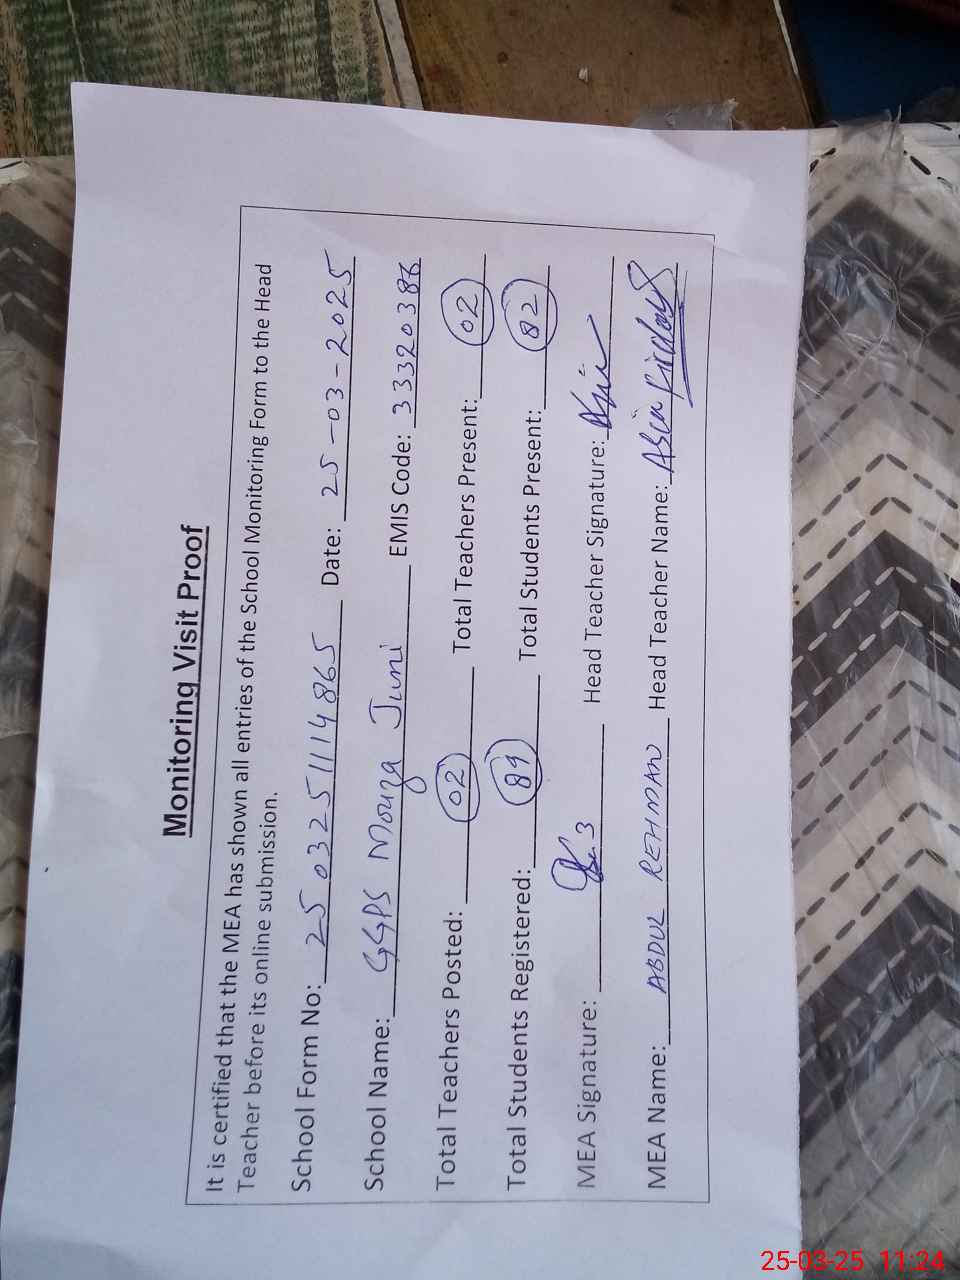 Monitoring Visit Proof
It is certified that the MEA has shown all entries of the School Monitoring Form to the Head
Teacher before its online submission.
School Form No: 25032511114865 Date: 25-03-2025
School Name: GGPS Mouza Juni EMIS Code: 33320386
Total Teachers Posted: 02 Total Teachers Present: 02
Total Students Registered: 89 Total Students Present: 82
MEA Signature: Head Teacher Signature:
MEA Name: ABDUL REHMAN Head Teacher Name:
25-03-25 11:24